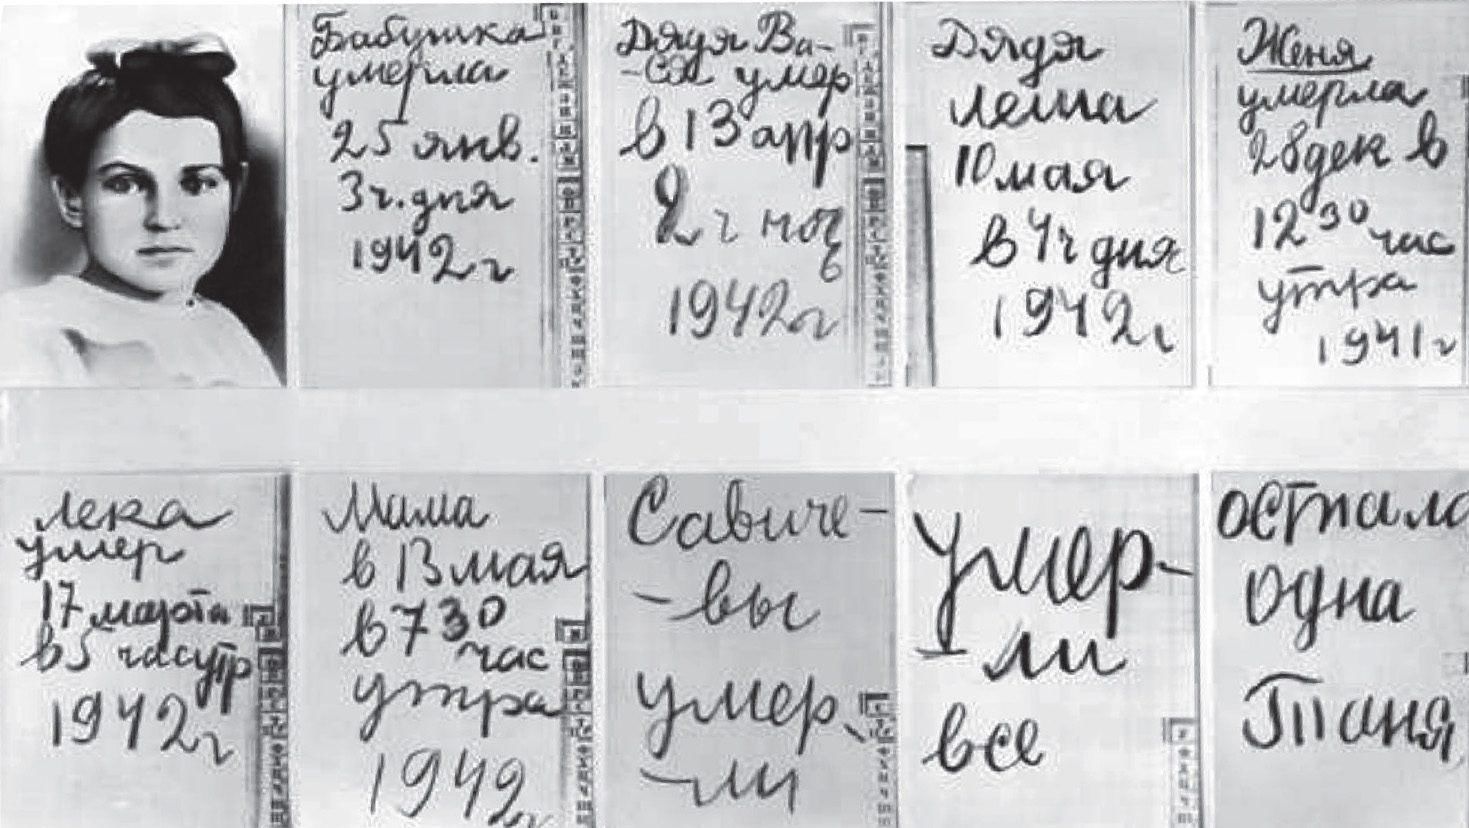 Бабушка
умерла
25 янв.
3ч. дня
1942 г
Дядя Ва-
-ся умер
в 13 апр
2 ч ночь
1942 г
Дядя
Леша
10 мая
в 4ч дня
1942 г
Женя
умерла
28 дек в
12 30 час
утра
1941 г
Лека
умер
17 марта
в 5 час утр
1942 г
Мама
в 13 мая
в 7 30
час
утра
1942 г
Савиче-
-вы
умер
-ли
Умер-
-ли
все
остала
одна
Таня